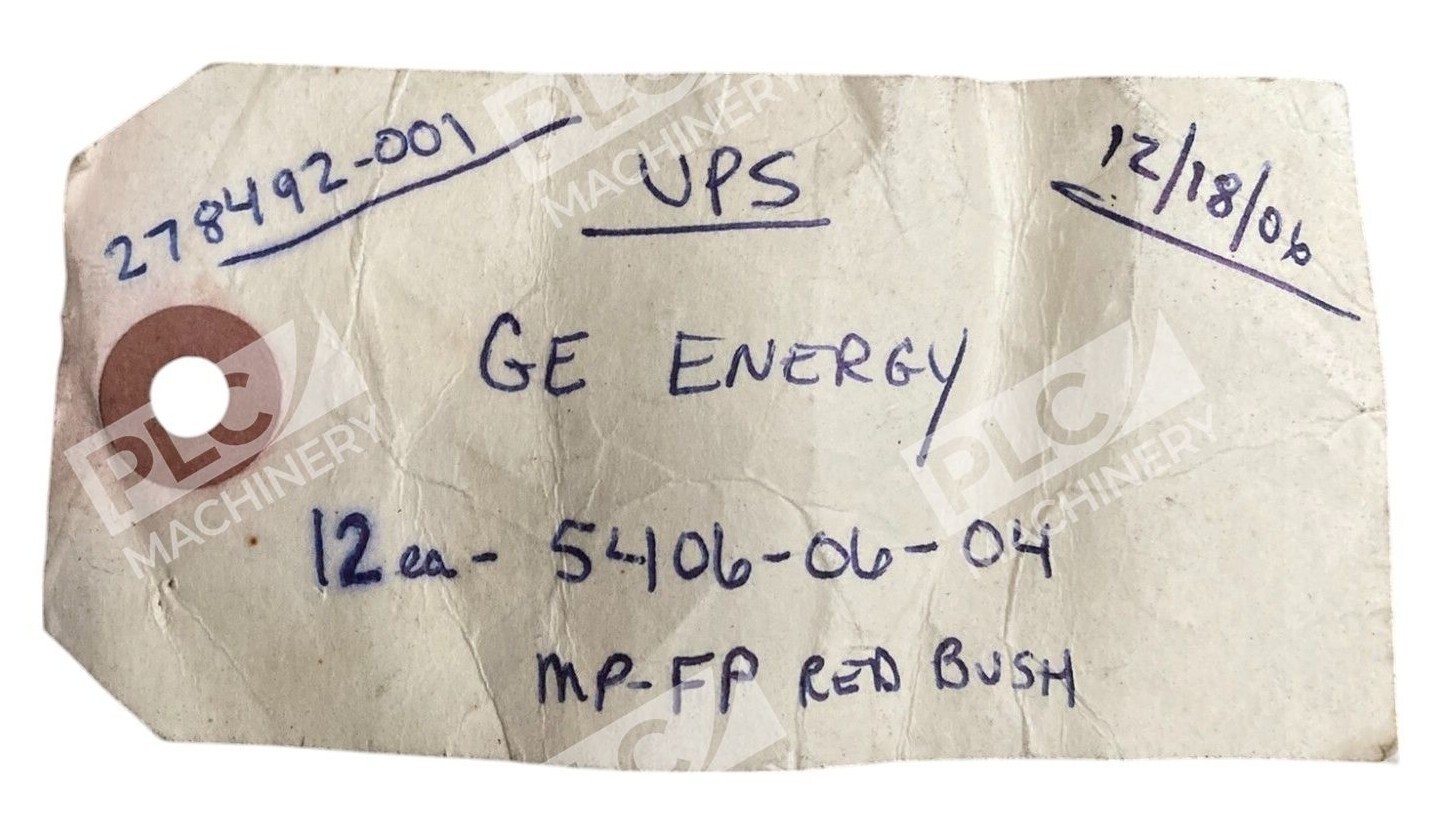 278492-001
UPS
12/18/06
GE ENERGY
12ea- 5406-06-04
MP-FP RED BUSH
PLC MACHINERY
PLC MACHINERY
PLC MACHINERY
PLC